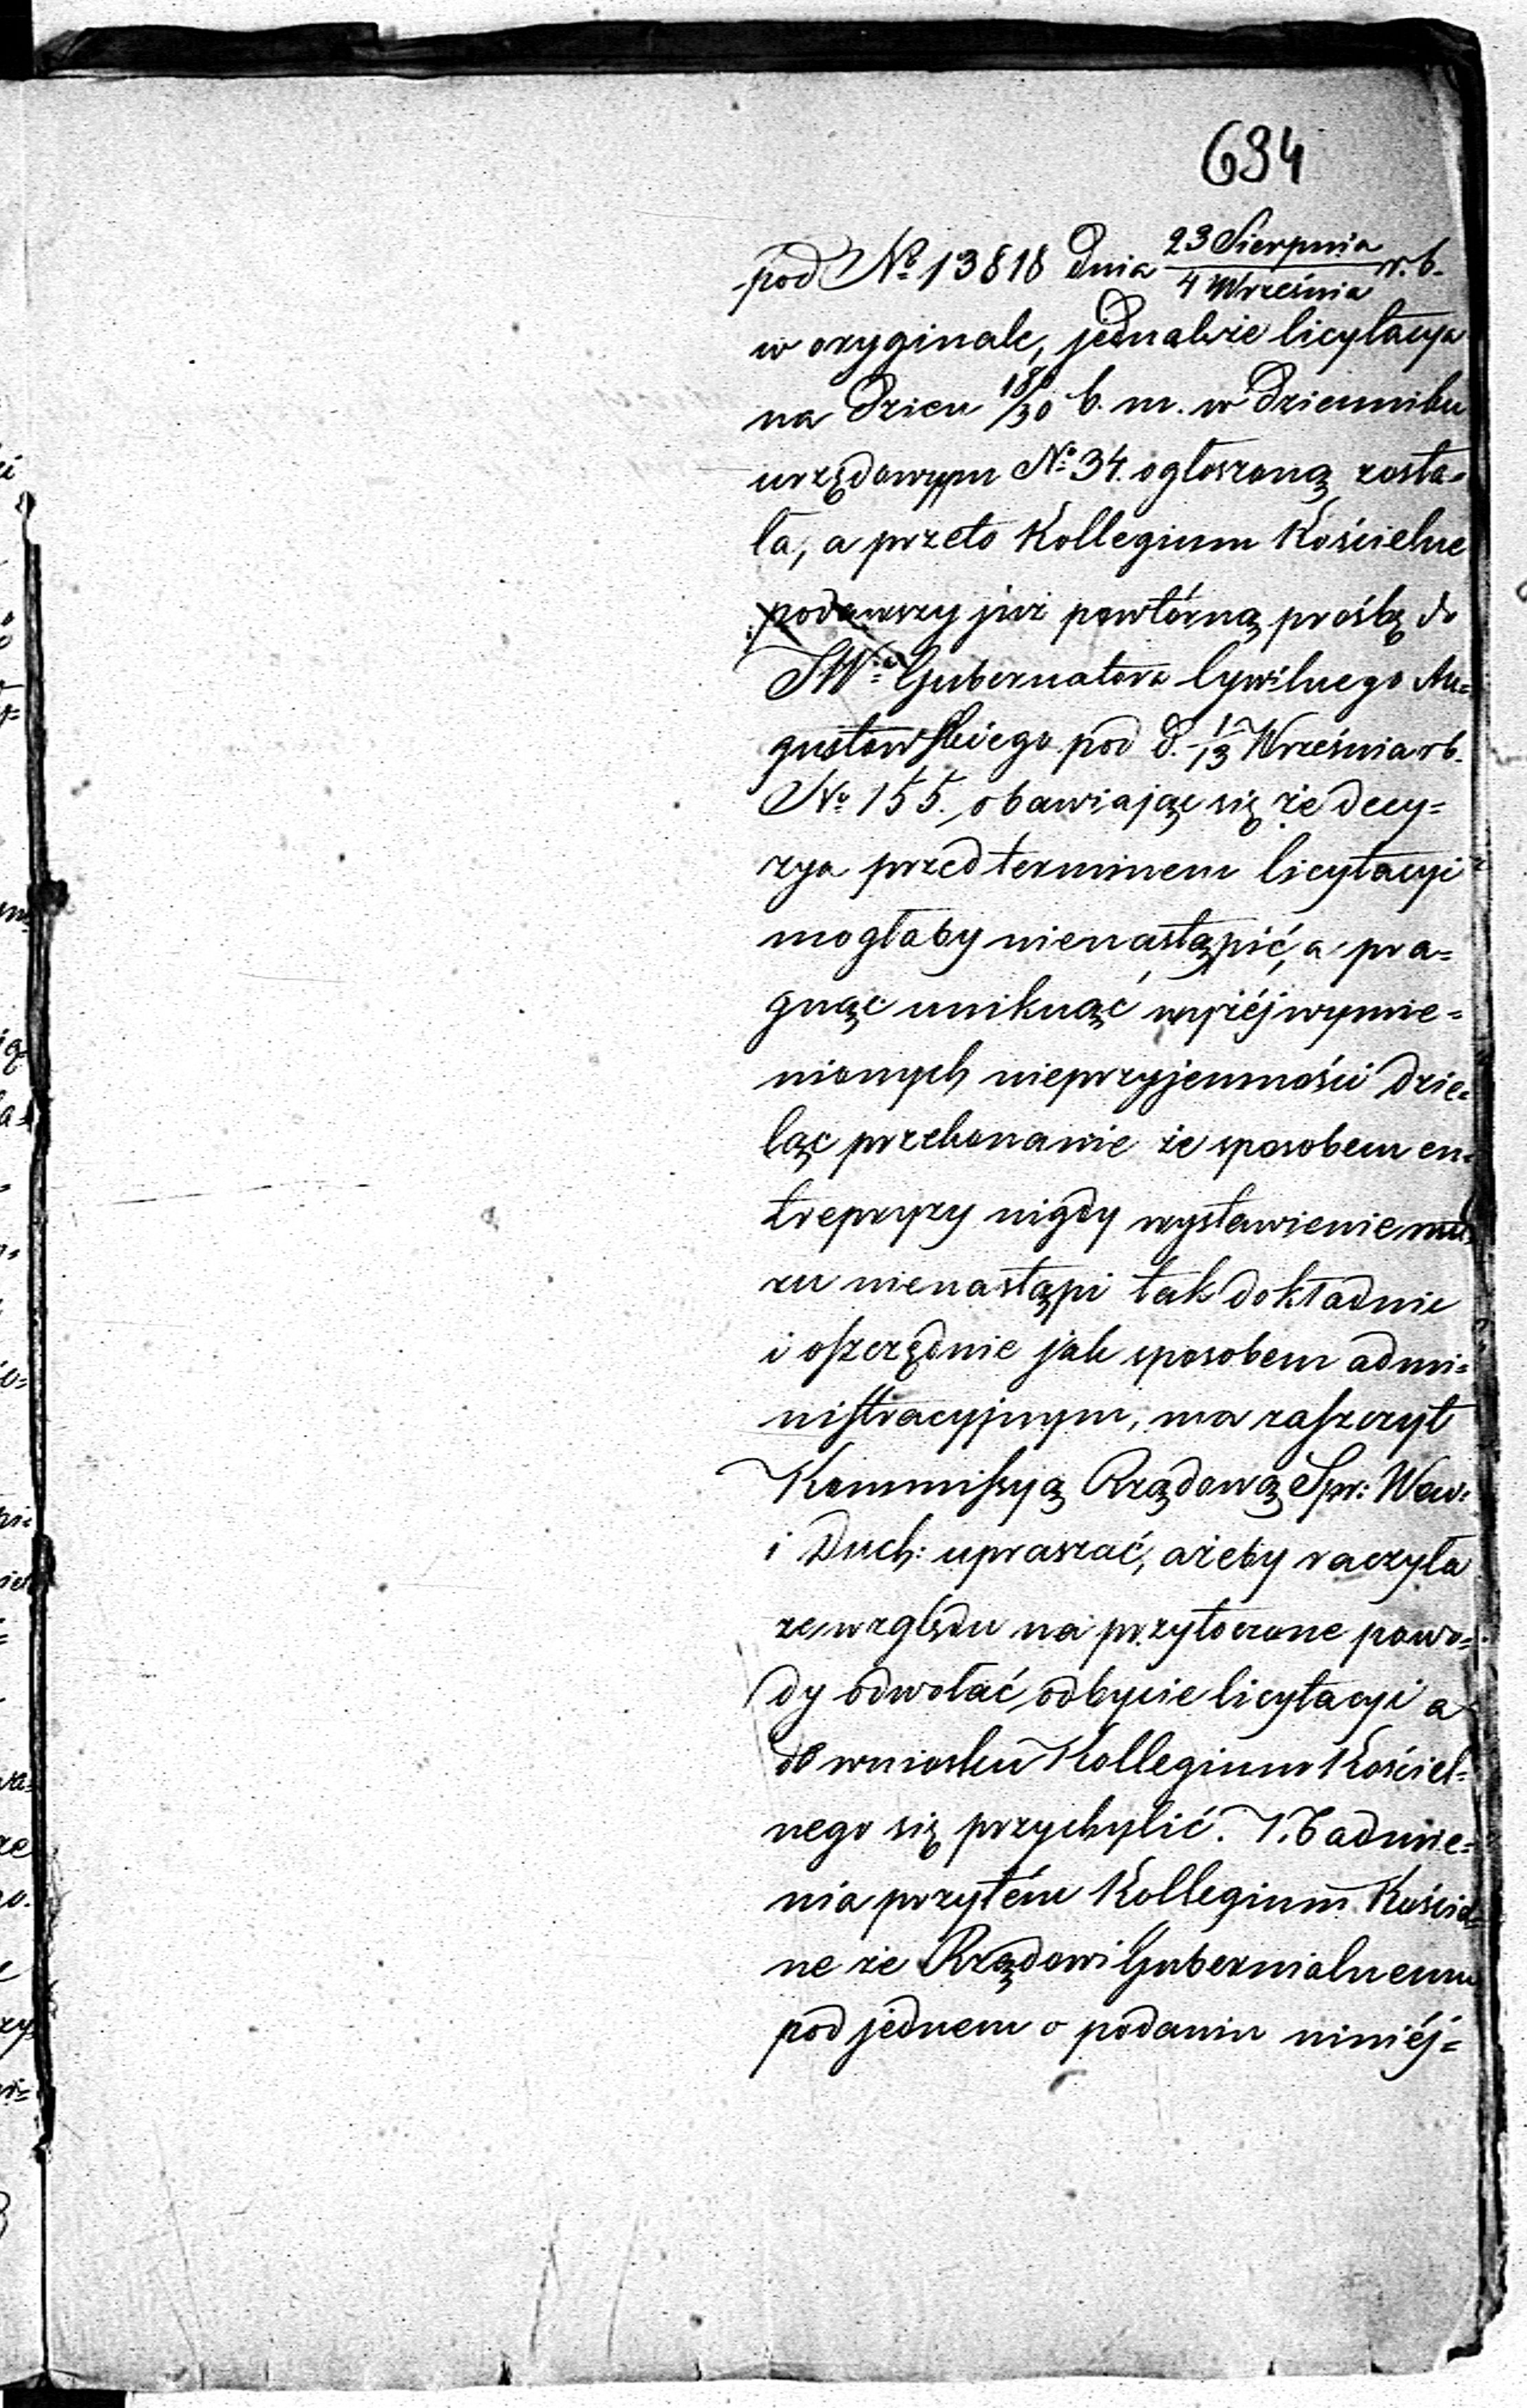 694
pod № 13818 Dnia 23 Sierpnia / 4 Września r. b.
w oryginale, jednakże licytacya
na dzień 18/30 b. m. w Dzienniku
urzędowym № 34. ogłoszoną zosta-
ła, a przeto Kollegium Kościelne
podawszy już powtórną prośbę do
JW° Gubernatora Cywilnego Au-
gustowskiego pod d. 1/13 Września rb.
№ 155., obawiając się że decy-
zya przed terminem licytacyi
mogłaby nienastąpić, a pra-
gnąc uniknąć wyżéj wymie-
nionych nieprzyjemności dzie-
ląc przekonanie że sposobem en-
trepryzy nigdy wystawienie mu-
ru nienastąpi tak dokładnie
i oszczędnie jak sposobem admi-
nistracyjnym, ma zaszczyt
Kommissyą Rządową Spr: Wew:
i Duch: upraszać, ażeby raczyła
ze względu na przytoczone powo-
dy odwołać odbycie licytacyi a
do wniosku Kollegium Kościel-
nego się przychylić. Nadmie-
nia przytém Kollegium Kościel-
ne że Rządowi Gubernialnemu
pod jednem o podaniu niniéj-